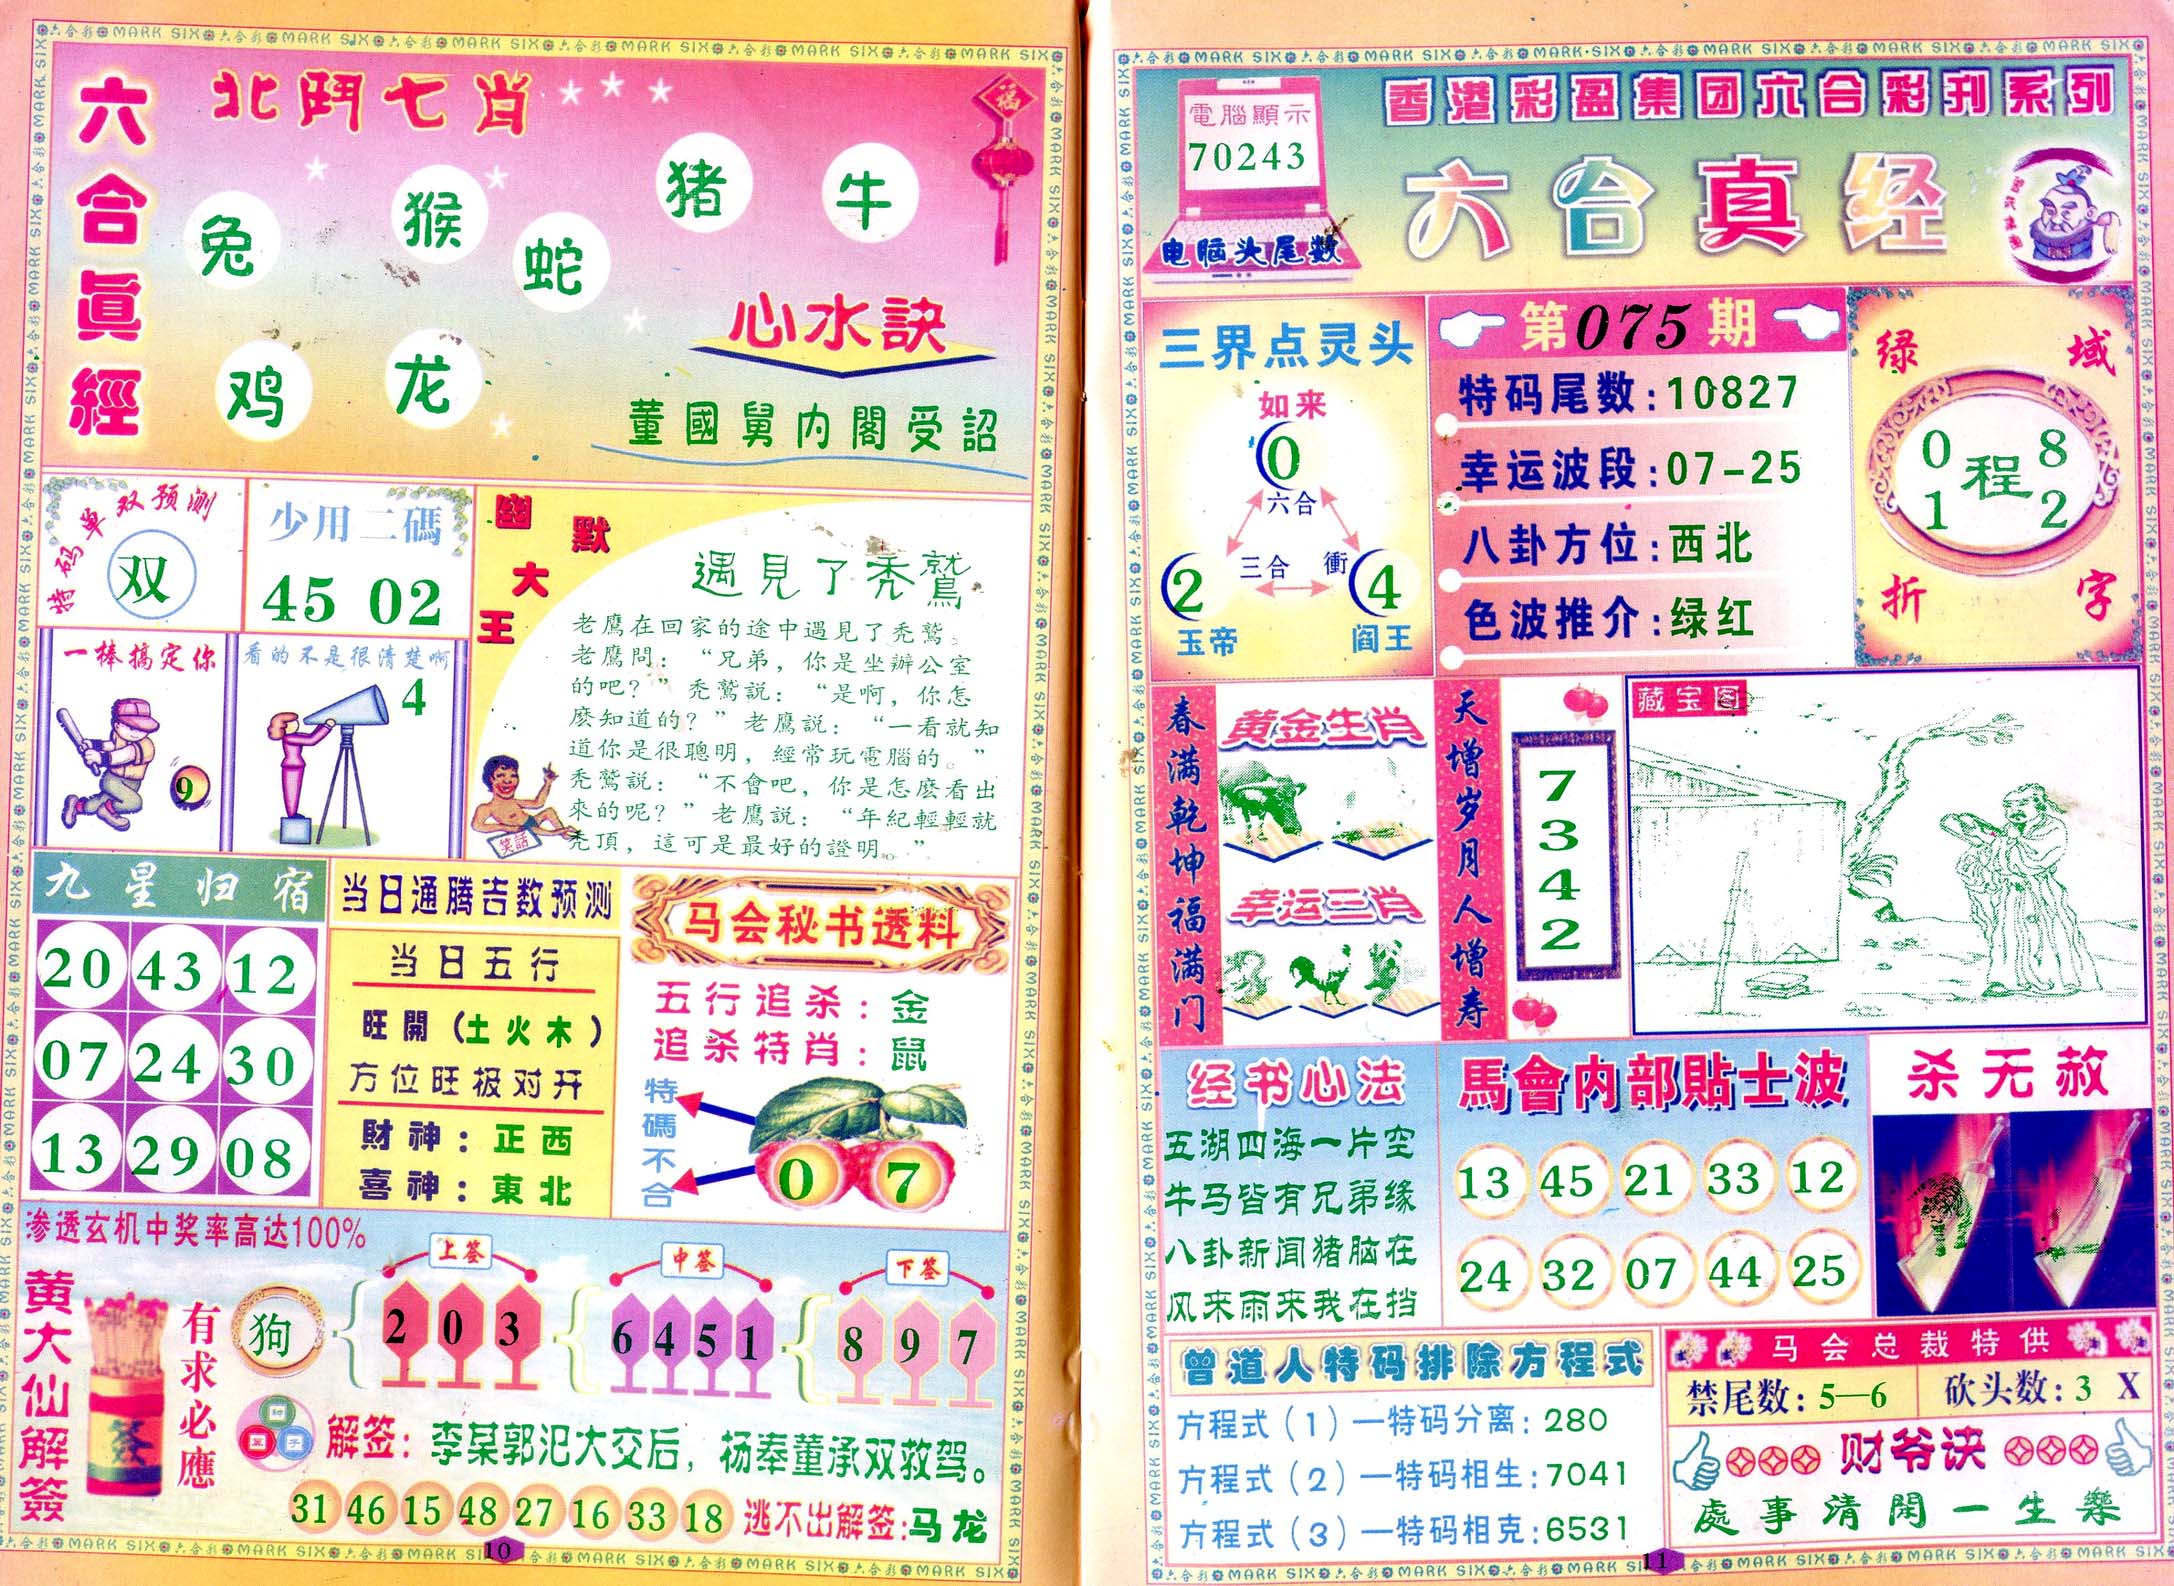 六合真經
北鬥七肖
兔
猴
蛇
猪
牛
鸡
龙
福
心水訣
董國舅内閣受詔
特码单双预测
双
少用二碼
45 02
一棒搞定你
9
看的不是很清楚啊
4
幽默大王
遇見了秃鷲
老鷹在回家的途中遇見了秃鷲。
老鷹問：“兄弟，你是坐辦公室
的吧？”秃鷲説：“是啊，你怎
麽知道的？”老鷹説：“一看就知
道你是很聰明，經常玩電腦的。”
秃鷲説：“不會吧，你是怎麽看出
來的呢？”老鷹説：“年紀輕輕就
秃頂，這可是最好的證明。”
笑話
九星归宿
20 43 12
07 24 30
13 29 08
当日通腾吉数预测
当日五行
旺開（土火木）
方位旺极对开
財神：正西
喜神：東北
马会秘书透料
五行追杀：金
追杀特肖：鼠
特碼不合
0 7
渗透玄机中奖率高达100%
黄大仙解簽
有求必應
狗
上签
2 0 3
中签
6 4 5 1
下签
8 9 7
解签：李某郭汜大交后，杨奉董承双救驾。
31 46 15 48 27 16 33 18 逃不出解签:马龙
10
電腦顯示
70243
电脑头尾数
香港彩盈集团六合彩刊系列
六合真经
三界点灵头
如来
0
六合
三合 衝
2 4
玉帝 阎王
第075期
特码尾数:10827
幸运波段:07-25
八卦方位:西北
色波推介:绿红
绿域折字
0 8
程
1 2
春满乾坤福满门
黄金生肖
幸运三肖
天增岁月人增寿
7
3
4
2
藏宝图
经书心法
五湖四海一片空
牛马皆有兄弟缘
八卦新闻猪脑在
风来雨来我在挡
馬會内部貼士波
13 45 21 33 12
24 32 07 44 25
杀无赦
曾道人特码排除方程式
方程式（1）—特码分离: 280
方程式（2）—特码相生:7041
方程式（3）—特码相克:6531
马会总裁特供
禁尾数: 5—6 砍头数: 3 X
财爷诀
處事清閑一生樂
11